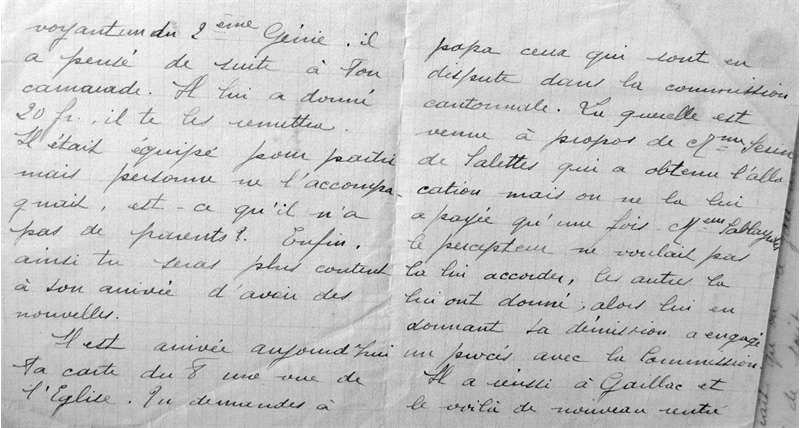 voyant un du 2ème Génie, il
a pensé de suite à ton
camarade. Il lui a donné
20 fr., il te les remettra.
Il était équipé pour partir
mais personne ne l'accompa-
gnait, est-ce qu'il n'a
pas de parents? Enfin,
ainsi tu seras plus content
à son arrivée d'avoir des
nouvelles.
Il est arrivée aujourd'hui
ta carte du 8 une vue de
l'Eglise. Tu demandes à
papa ceux qui sont en
dispute dans la commission
cantonnale. La querelle est
venue à propos de Mme
de Salettes qui a obtenu l'allo
cation mais on ne la lui
a payée qu'une fois.
le percepteur ne voulait pas
la lui accorder, les autres la
lui ont donné, alors lui en
donnant sa démission a engagé
un procés avec la Commission.
Il a réussi à Gaillac et
le voilà de nouveau rentré